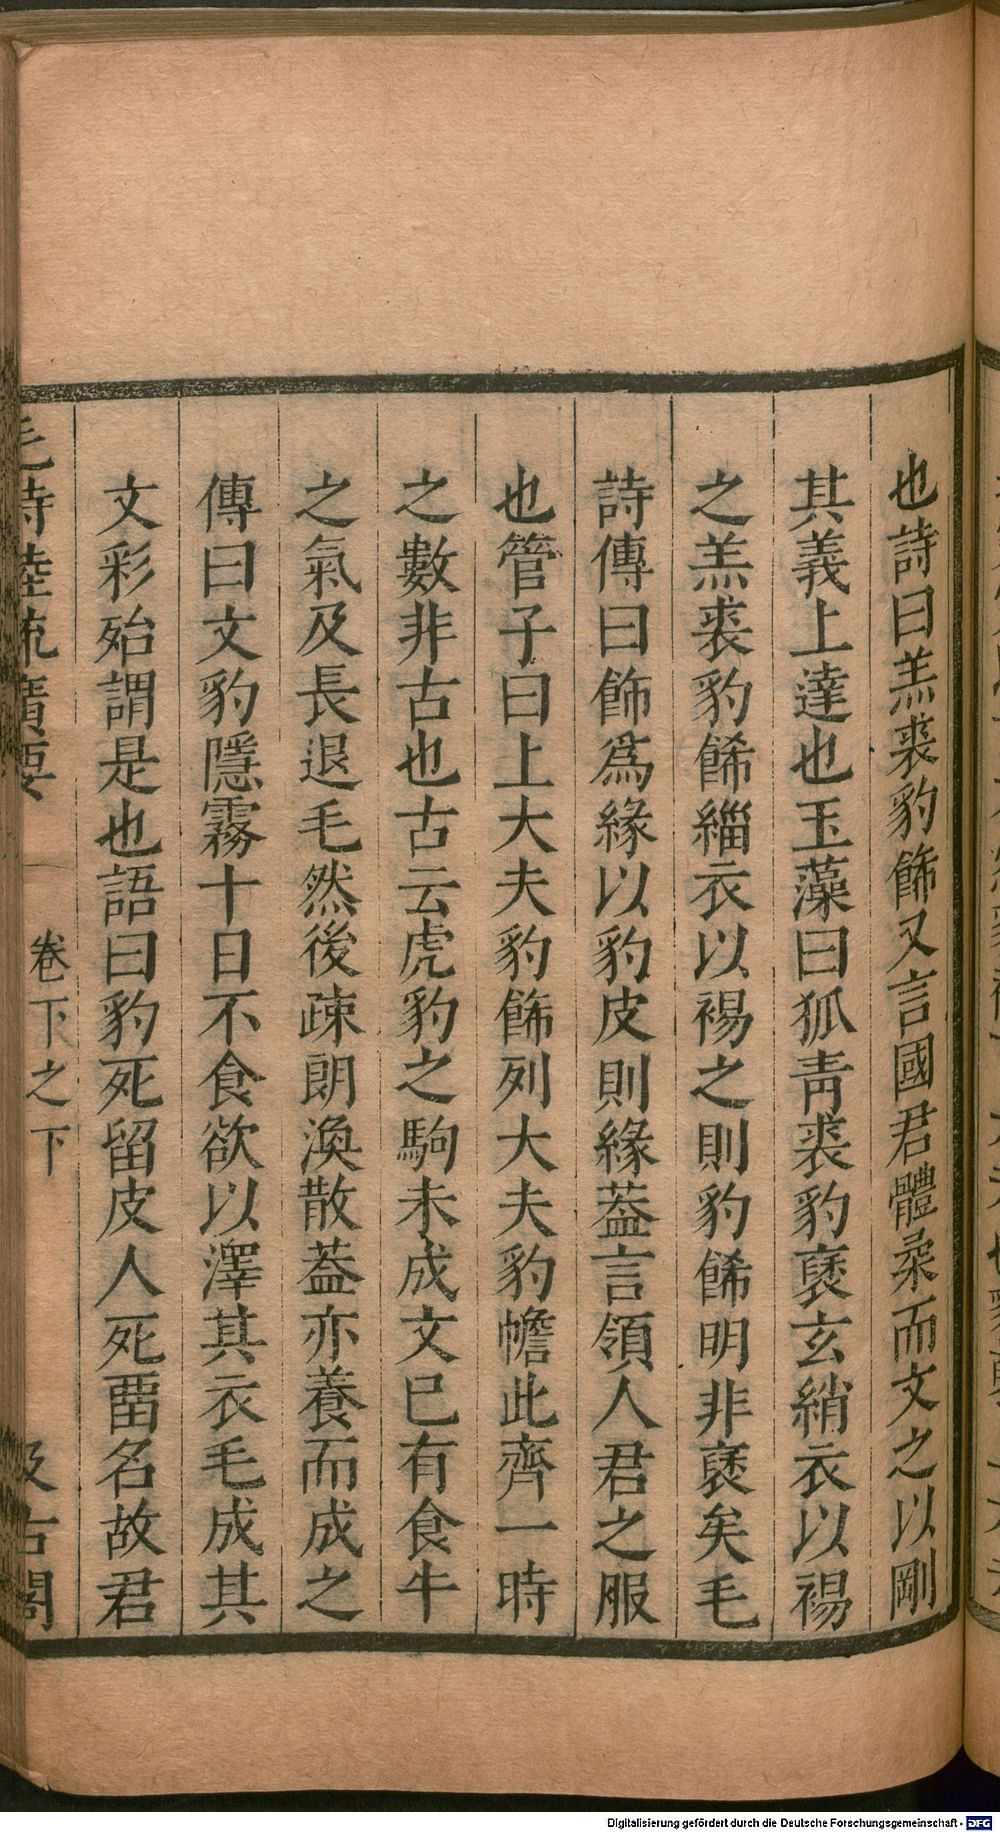 也詩曰羔裘豹飾又言國君體柔而文之以剛
其義上達也玉藻曰狐靑裘豹褎玄綃衣以裼
之羔裘豹餙緇衣以裼之則豹餙明非褎矣毛
詩傳曰飾爲緣以豹皮則緣葢言領人君之服
也管子曰上大夫豹飾列大夫豹幨此齊一時
之數非古也古云虎豹之駒未成文已有食牛
之氣及長退毛然後疎朗渙散葢亦養而成之
傳曰文豹隱霧十日不食欲以澤其衣毛成其
文彩殆謂是也語曰豹死留皮人死畱名故君
毛詩陸疏廣要 卷下之下 汲古閣
Digitalisierung gefördert durch die Deutsche Forschungsgemeinschaft - DFG